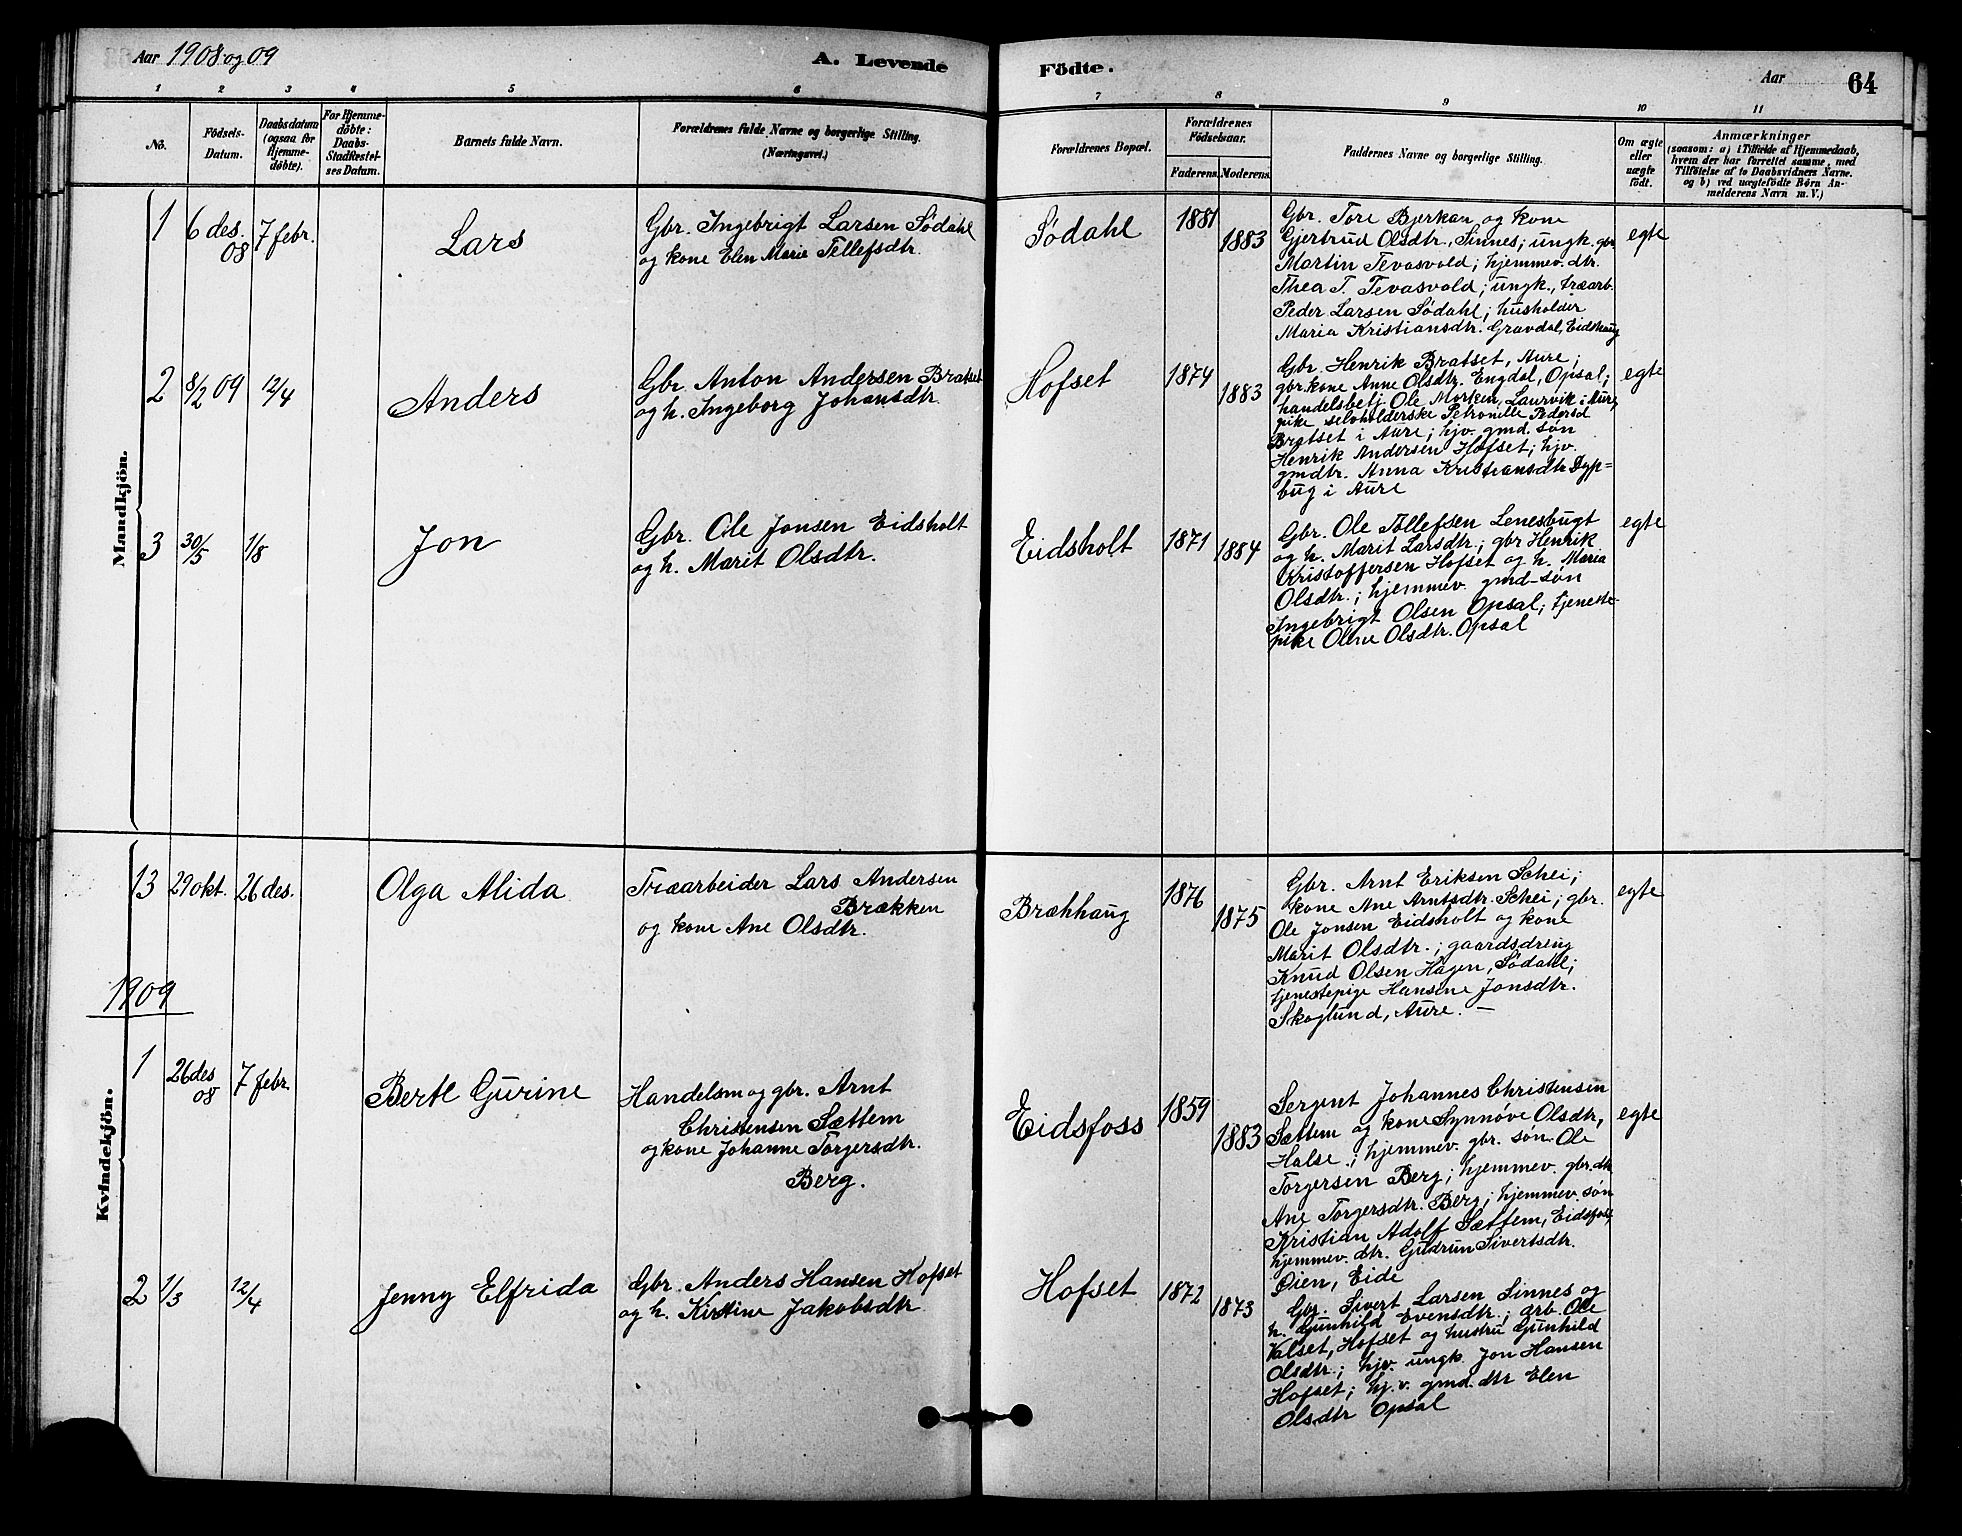 Aar 1908 og 09
A. Levende
Födte.
Aar
64
1 2 3 4 5 6 7 8 9 10 11
No.
Födsels-
Datum.
Daabsdatum
(ogsaa for
Hjemme-
döbte).
For Hjemme-
döbte:
Daabs-
Barnets fulde Navn.
Forældrenes fulde Navne og borgerlige Stilling.
(Næringsvei.)
Forældrenes Bopæl.
Forældrenes
Födselsaar.
Faderens. Moderens.
Faddernes Navne og borgerlige Stilling.
Om ægte
eller
uægte
födt.
Anmærkninger
(saasom: a) i Tilfælde af Hjemmedaab,
hvem der har forrettet samme, med
Tilföielse af to Daabsvidners Navne.
og b) ved uægtefödte Börn An-
melderens Navn m. V.)
Mandkjön.
1
6 des.
08
7 febr.
Lars
Gbr. Ingebrigt Larsen Södahl
og kone Elen Marie Tellefsdtr.
Södahl
1881
1883
Gbr. Tore Bjerkan og kone
Gjertrud Olsdtr., Sinnes; ungk. gbr
Martin Tevasvold; hjemmev. dtr.
Thea T. Tevasvold; ungk., træarb.
Peder Larsen Södahl; husholder
Maria Kristiansdtr. Gravdal, Eidshaug
egte
2
8/2 09
12/4
Anders
Gbr. Anton Andersen Bratset
og h. Ingeborg Johansdtr.
Hofset
1874
1883
Gbr. Henrik Bratset, Aure;
gbr. kone Anne Olsdtr. Engdal, Opsal;
handelsbetj Ole Morken, Laurvik i Aure,
pike selvholderske Petronelle Pedersd
Bratset i Aure; hjv. gmd. søn
Henrik Andersen Hofset; hjv.
gmdtr. Anna Kristiansdtr Dyp=
bug i Aure
egte
3
30/5
1/8
Jon
Gbr. Ole Jonsen Eidsholt
og h. Marit Olsdtr.
Eidsholt
1871
1884
Gbr. Ole Tollefsen Lenesbugt
og h. Marit Larsdtr.; gbr Henrik
Kristoffersen Hofset og h. Maria
Olsdtr.; hjemmev. gmd-søn
Ingebrigt Olsen Opsal; tjeneste-
pike Oline Olsdtr. Opsal
egte
Kvindekjön.
13
29 okt.
26 des.
Olga Alida
Træarbeider Lars Andersen
Brækken
og kone Ane Olsdtr.
Bræhhaug
1876
1875
Gbr. Arnt Eriksen Schei;
kone Ane Arntsdtr. Schei; gbr.
Ole Jonsen Eidsholt og kone
Marit Olsdtr.; gaardsdreng
Knud Olsen Hagen, Södahl;
tjenestepige Hansine Jonsdtr.
Skoglund, Aure. —
egte
1909
1
26 des
08
7 febr.
Berte Gurine
Handelsm og gbr. Arnt
Christensen Sættem
og kone Johanne Torgersdtr.
Berg.
Eidsfoss
1859
1883
Sergent Johannes Christensen
Sættem og kone Synnöve Olsdtr,
Halse; hjemmev. gbr. søn Ole
Torgersen Berg; hjemmev. gbr. dtr
Ane Torgersdtr. Berg; hjemmev. søn
Kristian Adolf Sættem, Eidsfoss,
hjemmev. dtr. Gudrun Sivertsdtr.
Øien, Eide
egte
2
1/3
12/4
Jenny Elfrida
Gbr. Anders Hansen Hofset
og h. Kirstine Jakobsdtr.
Hofset
1872
1873
Gbr. Sivert Larsen Sinnes og
h. Gunhild Evensdtr.; arb. Ole
Valset, Hofset og hustru Gunhild
Olsdtr.; hjv. ungk. Jon Hansen
Hofset; hj.v. gmd. dtr Elen
Olsdtr Opsal